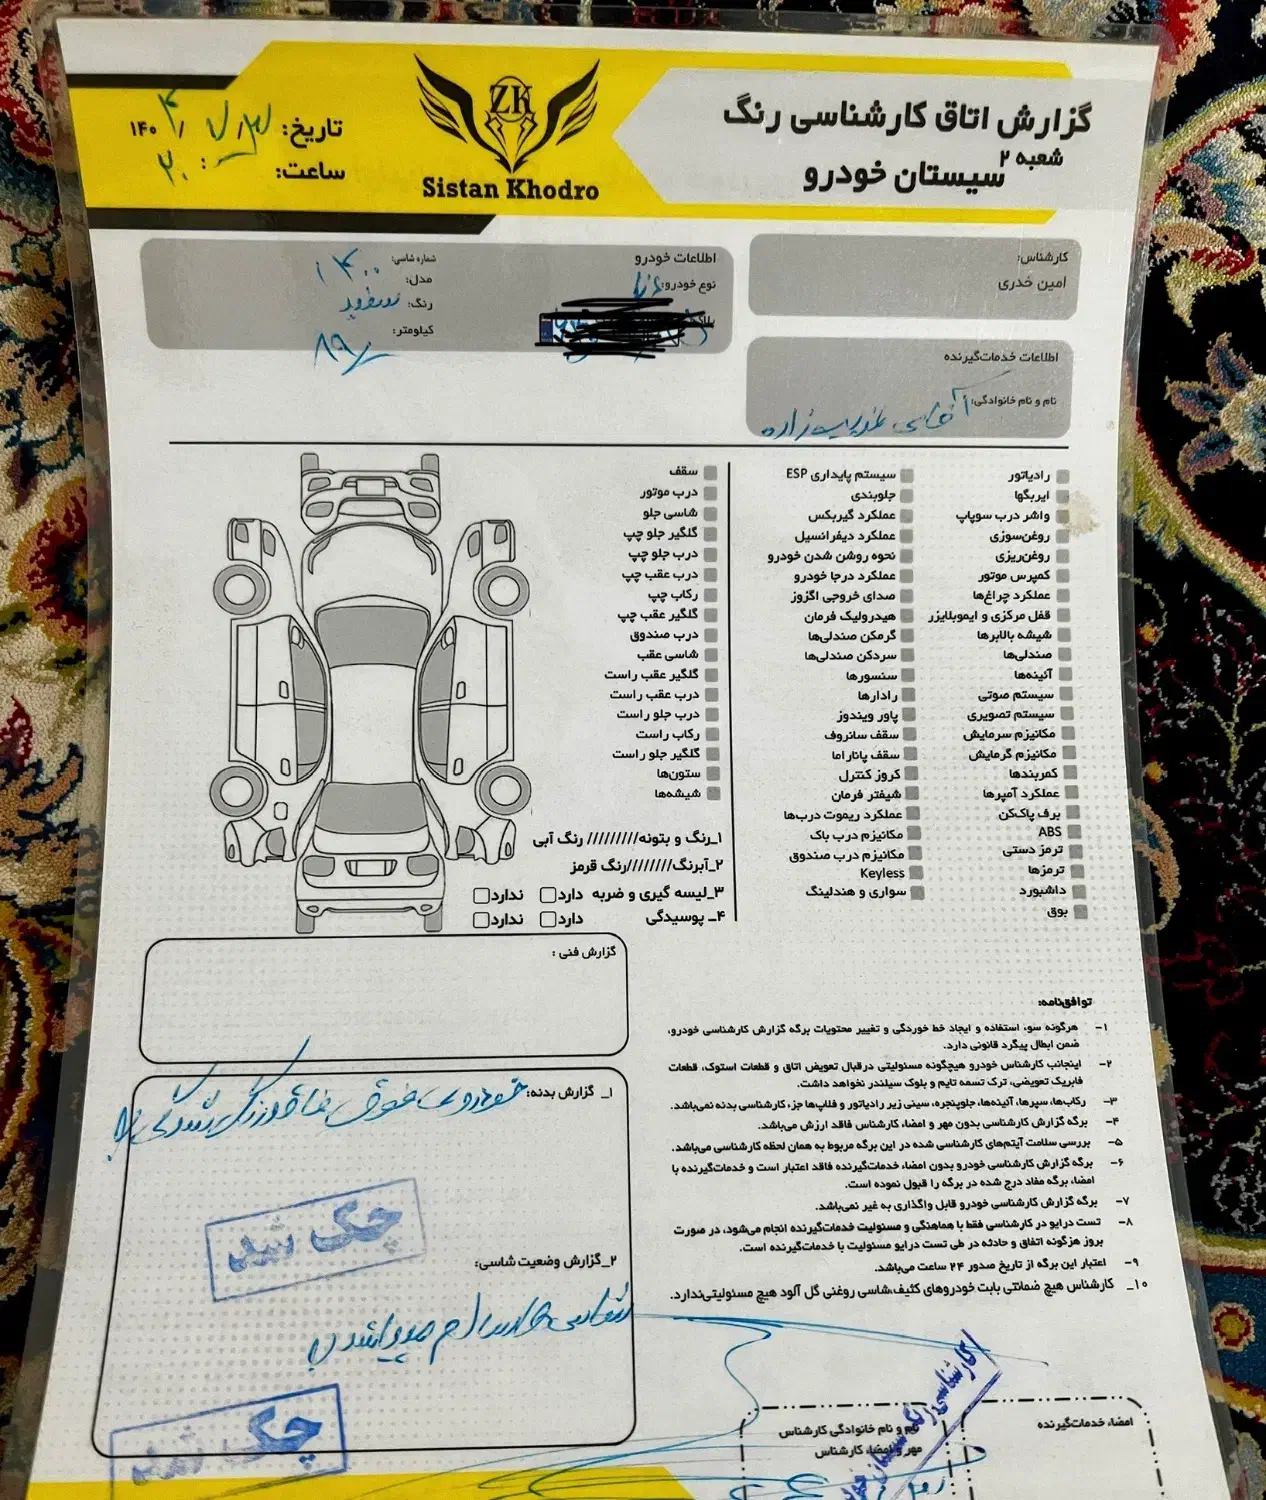 گزارش اتاق کارشناسی رنگ
شعبه ۲
سیستان خودرو
ZK
Sistan Khodro
تاریخ: ۱۴۰۴/۷/۳
ساعت: ۲۰:
کارشناس:
امین خدری
اطلاعات خدمات‌گیرنده
نام و نام خانوادگی: آقای
اطلاعات خودرو
نوع خودرو:
پلاک
شماره شاسی:
مدل: ۱۴۰۰
رنگ: سفید
کیلومتر:
رادیاتور
ایربگها
واشر درب سوپاپ
روغن‌سوزی
روغن‌ریزی
کمپرس موتور
عملکرد چراغ‌ها
قفل مرکزی و ایموبلایزر
شیشه بالابرها
صندلی‌ها
آئینه‌ها
سیستم صوتی
سیستم تصویری
مکانیزم سرمایش
مکانیزم گرمایش
کمربندها
عملکرد آمپرها
برف پاک‌کن
ABS
ترمز دستی
ترمزها
داشبورد
بوق
سیستم پایداری ESP
جلوبندی
عملکرد گیربکس
عملکرد دیفرانسیل
نحوه روشن شدن خودرو
عملکرد درجا خودرو
صدای خروجی اگزوز
هیدرولیک فرمان
گرمکن صندلی‌ها
سردکن صندلی‌ها
سنسورها
رادارها
پاور ویندوز
سقف سانروف
سقف پاناراما
کروز کنترل
شیفتر فرمان
عملکرد ریموت درب‌ها
مکانیزم درب باک
مکانیزم درب صندوق
Keyless
سواری و هندلینگ
سقف
درب موتور
شاسی جلو
گلگیر جلو چپ
درب جلو چپ
درب عقب چپ
رکاب چپ
گلگیر عقب چپ
درب صندوق
شاسی عقب
گلگیر عقب راست
درب عقب راست
درب جلو راست
رکاب راست
گلگیر جلو راست
ستون‌ها
شیشه‌ها
۱_رنگ و بتونه///////// رنگ آبی
۲_آبرنگ////////رنگ قرمز
۳_لیسه گیری و ضربه دارد ندارد
۴_ پوسیدگی دارد ندارد
گزارش فنی :
۱_ گزارش بدنه: خودروی فوق فاقد رنگ
چک شد
۲_گزارش وضعیت شاسی:
شاسی ها سالم میباشد
چک شد
توافق‌نامه:
۱- هرگونه سو، استفاده و ایجاد خط خوردگی و تغییر محتویات برگه گزارش کارشناسی خودرو،
ضمن ابطال پیگرد قانونی دارد.
۲- اینجانب کارشناس خودرو هیچگونه مسئولیتی درقبال تعویض اتاق و قطعات استوک، قطعات
فابریک تعویضی، ترک تسمه تایم و بلوک سیلندر نخواهد داشت.
۳- رکاب‌ها، سپرها، آئینه‌ها، جلوپنجره، سینی زیر رادیاتور و فلاپ‌ها جز، کارشناسی بدنه نمی‌باشد.
۴- برگه گزارش کارشناسی بدون مهر و امضا، کارشناس فاقد ارزش می‌باشد.
۵- بررسی سلامت آیتم‌های کارشناسی شده در این برگه مربوط به همان لحظه کارشناسی می‌باشد.
۶- برگه گزارش کارشناسی خودرو بدون امضا، خدمات‌گیرنده فاقد اعتبار است و خدمات‌گیرنده با
امضا، برگه مفاد درج شده در برگه را قبول نموده است.
۷- برگه گزارش کارشناسی خودرو قابل واگذاری به غیر نمی‌باشد.
۸- تست درایو در کارشناسی فقط با هماهنگی و مسئولیت خدمات‌گیرنده انجام می‌شود، در صورت
بروز هرگونه اتفاق و حادثه در طی تست درایو مسئولیت با خدمات‌گیرنده است.
۹- اعتبار این برگه از تاریخ صدور ۲۴ ساعت می‌باشد.
۱۰_ کارشناس هیچ ضمانتی بابت خودروهای کثیف،شاسی روغنی گل آلود هیچ مسئولیتی‌ندارد.
امضا، خدمات‌گیرنده
نام و نام خانوادگی کارشناس
مهر و امضا، کارشناس